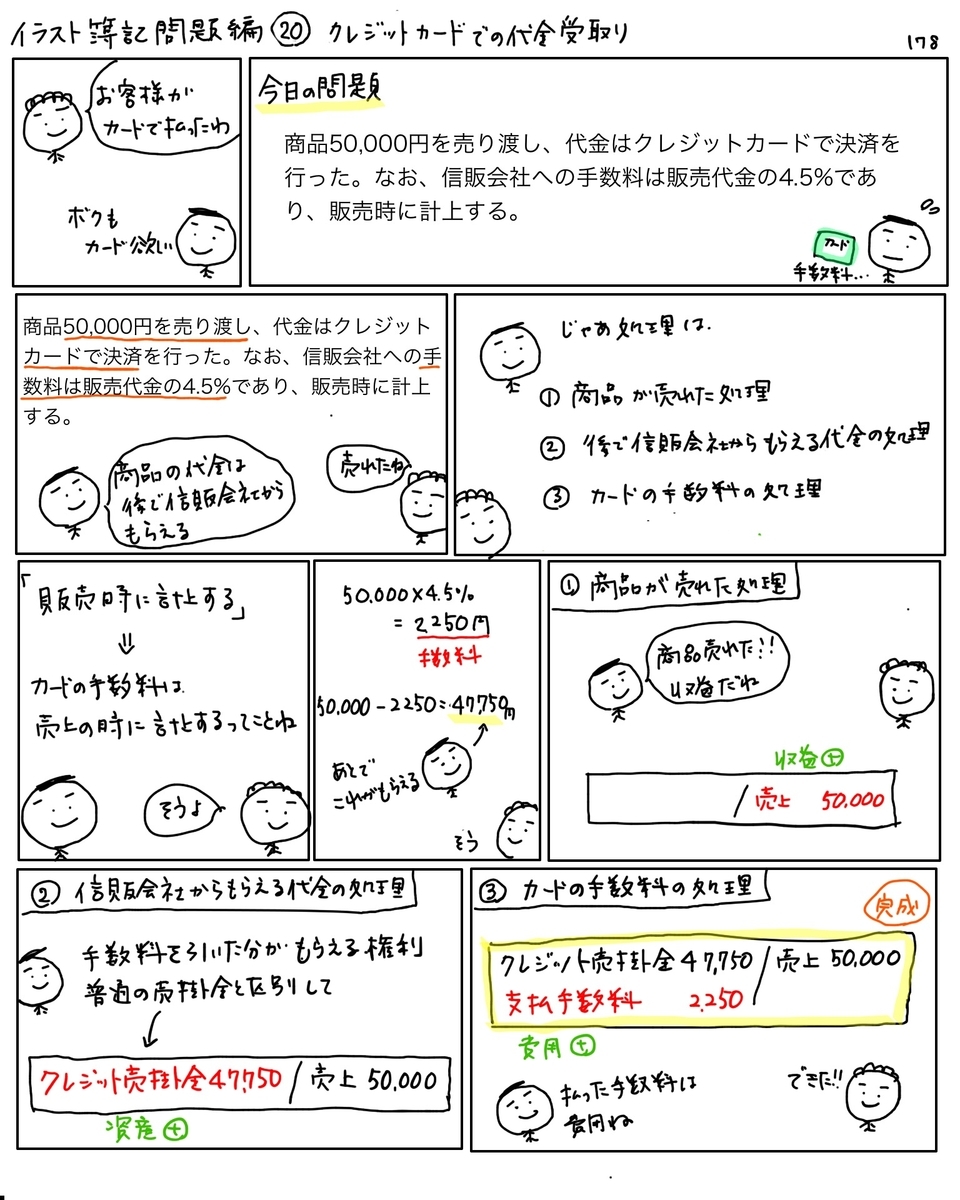 イラスト簿記問題編⑳ クレジットカードでの代金受取り
178
お客様が
カードで払ったわ
ボクも
カード欲しい
今日の問題
商品50,000円を売り渡し、代金はクレジットカードで決済を
行った。なお、信販会社への手数料は販売代金の4.5%であ
り、販売時に計上する。
カード
手数料...
商品50,000円を売り渡し、代金はクレジット
カードで決済を行った。なお、信販会社への手
数料は販売代金の4.5%であり、販売時に計上
する。
商品の代金は
後で信販会社から
もらえる
売れたね
じゃあ処理は.
① 商品が売れた処理
② 後で信販会社からもらえる代金の処理
③ カードの手数料の処理
「販売時に計上する」
⇓
カードの手数料は、
売上の時に計上するってことね
そうよ
50,000×4.5%
=2,250円
手数料
50,000-2250=47,750円
あとで
これがもらえる
そう
①商品が売れた処理
商品売れた!!
収益だね
収益⊕
/売上 50,000
② 信販会社からもらえる代金の処理
手数料を引いた分がもらえる権利
普通の売掛金と区別して
クレジット売掛金47,750 / 売上 50,000
資産⊕
③ カードの手数料の処理
完成
クレジット売掛金 47,750 / 売上 50,000
支払手数料 2,250
費用⊕
払った手数料は
費用ね
できた!!